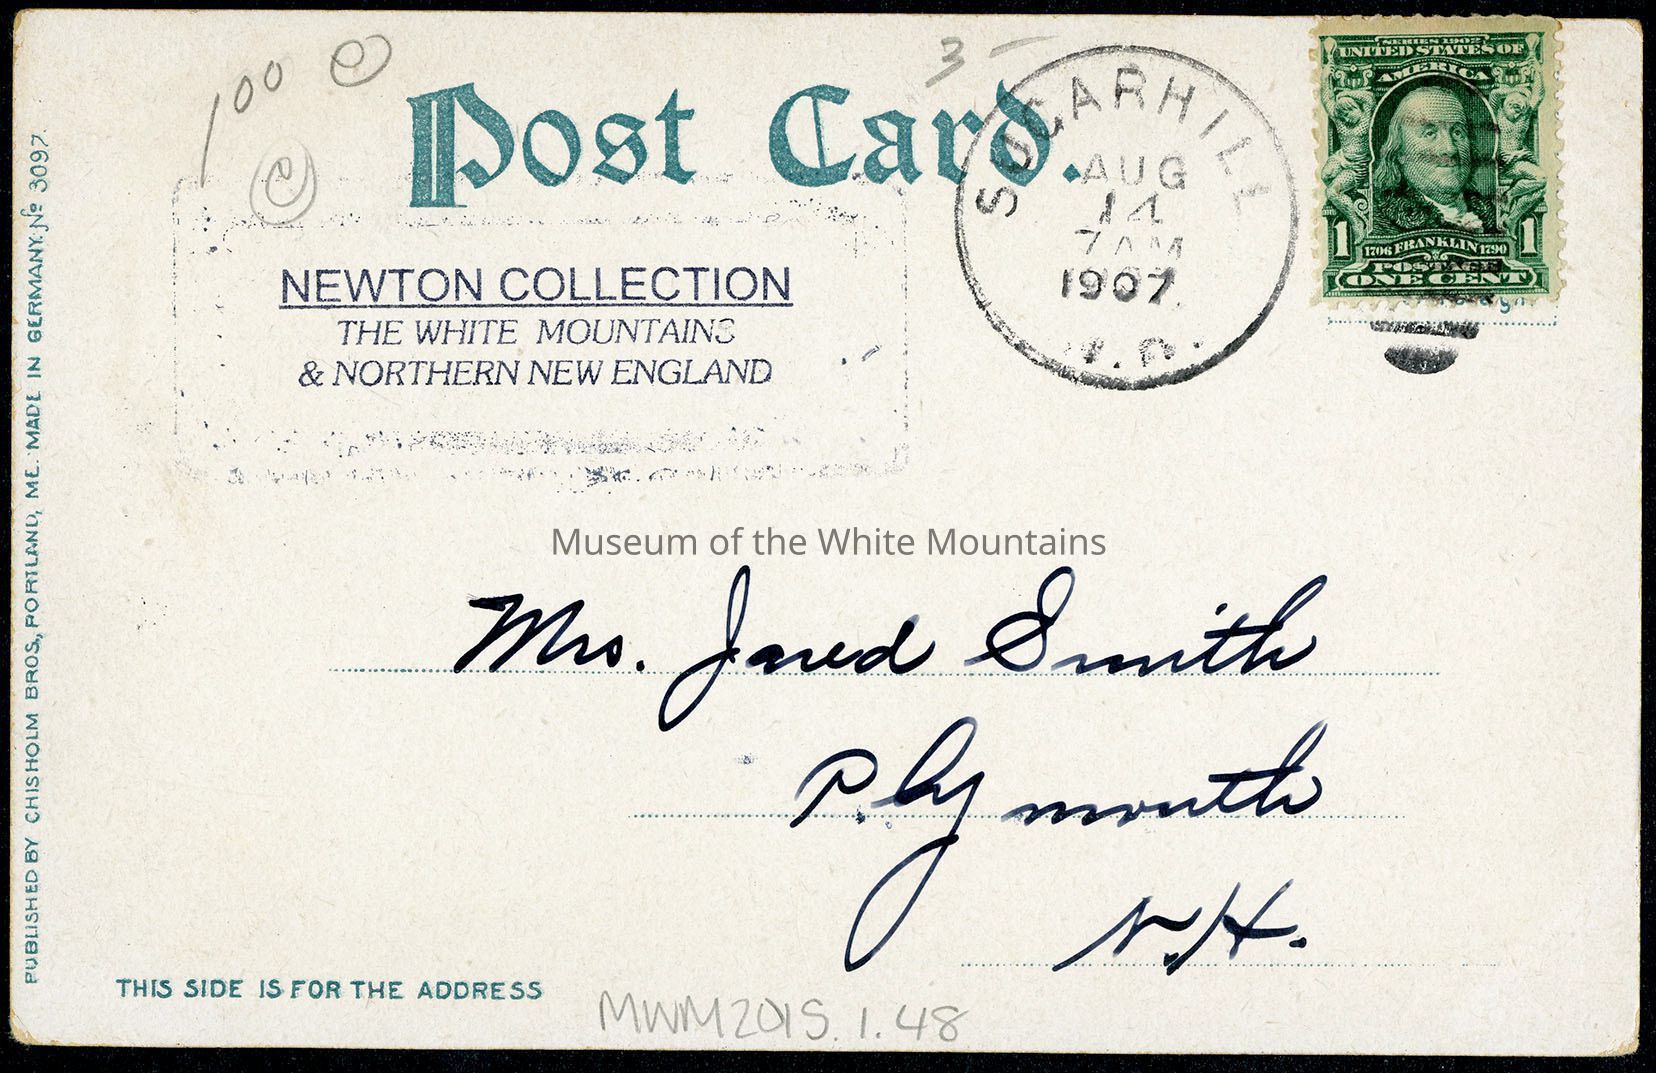 100 ©
©
3 –
Post Card.
SUGARHILL
AUG
14
7 AM
1907
SERIES 1902
UNITED STATES OF
AMERICA
1 1706 FRANKLIN 1790 1
POSTAGE
ONE CENT
NEWTON COLLECTION
THE WHITE MOUNTAINS
& NORTHERN NEW ENGLAND
Museum of the White Mountains
Mrs. Jared Smith
Plymouth
N.H.
THIS SIDE IS FOR THE ADDRESS
MWM2015.1.48
PUBLISHED BY CHISHOLM BROS., PORTLAND, ME. MADE IN GERMANY. № 3097.